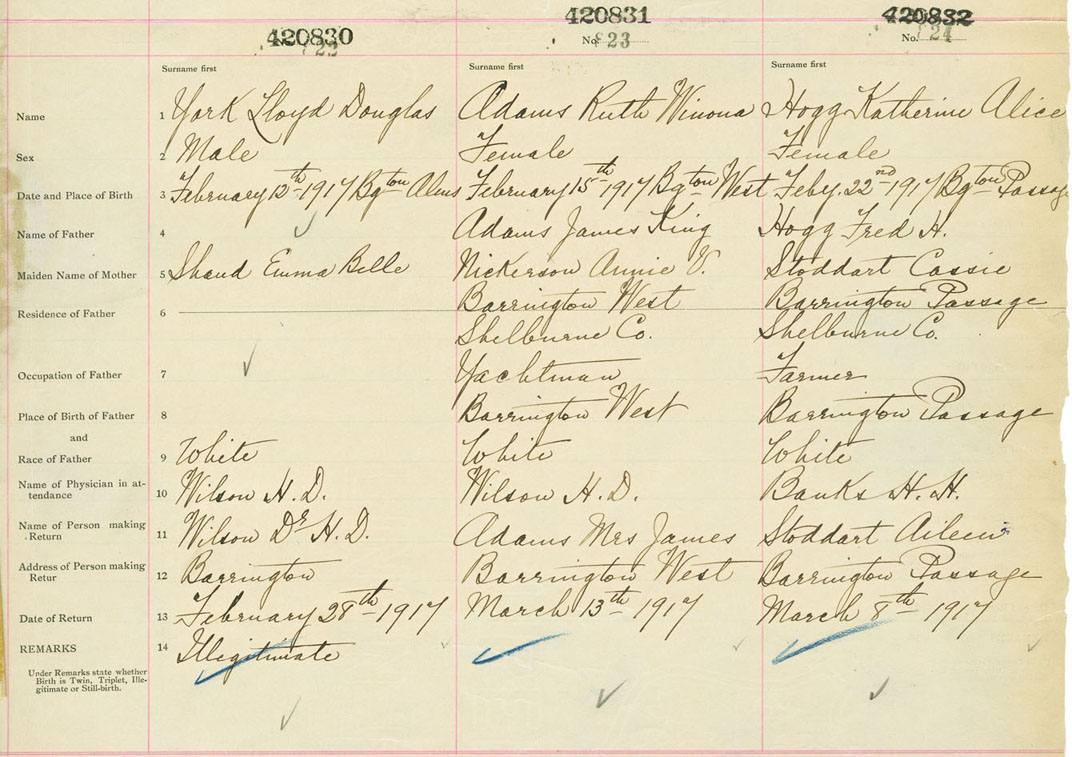 420830
420831
420832
No. 823
No. 824
Surname first
Surname first
Surname first
Name 1 York Lloyd Douglas
Adams Ruth Winona
Hogg Katherine Alice
Sex 2 Male
Female
Female
Date and Place of Birth 3 February 12th 1917 Bgton
February 15th 1917 Bgton West
Feby. 22nd 1917 Bgton Passage
Name of Father 4
Adams James King
Hogg Fred H.
Maiden Name of Mother 5 Shand Emma Belle
Nickerson Annie V.
Stoddart Cassie
Residence of Father 6
Barrington West
Shelburne Co.
Barrington Passage
Shelburne Co.
Occupation of Father 7
Yachtman
Farmer
Place of Birth of Father 8
Barrington West
Barrington Passage
and
Race of Father 9 White
White
White
Name of Physician in at-
tendance 10 Wilson H. D.
Wilson H. D.
Banks H. H.
Name of Person making
Return 11 Wilson Dr H. D.
Adams Mrs James
Stoddart Aileen
Address of Person making
Retur 12 Barrington
Barrington West
Barrington Passage
Date of Return 13 February 28th 1917
March 13th 1917
March 8th 1917
REMARKS 14 Illegitimate
Under Remarks state whether
Birth is Twin, Triplet, Ille-
gitimate or Still-birth.